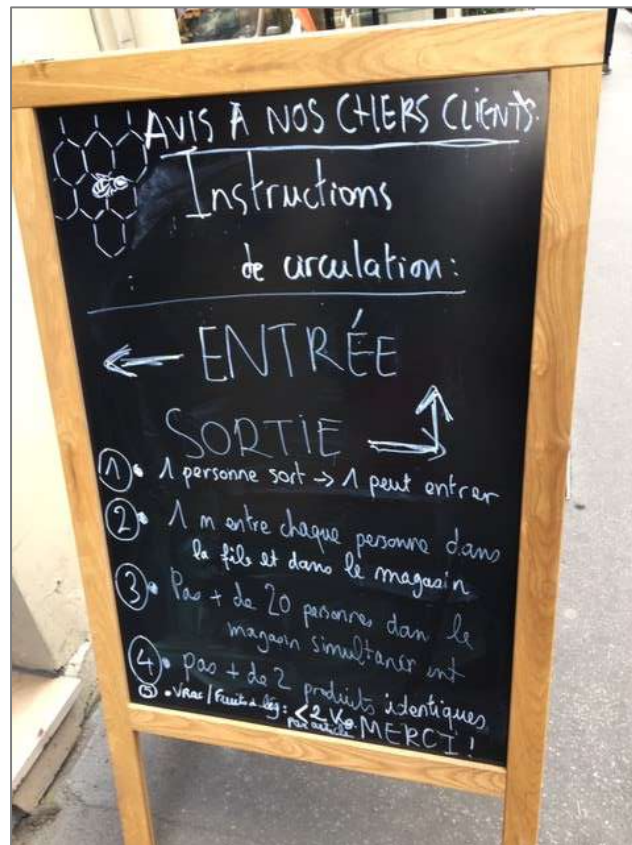 AVIS A NOS CHERS CLIENTS.
Instructions
de circulation :
← ENTRÉE
SORTIE
① • 1 personne sort → 1 peut entrer
② • 1 m entre chaque personne dans
la file et dans le magasin
③ • Pas + de 20 personnes dan le
magasin simultaném ent
④ • pas + de 2 produits identiques
⑤ • VRac / Fruits & lég : < 2 Kg
par article MERCI !